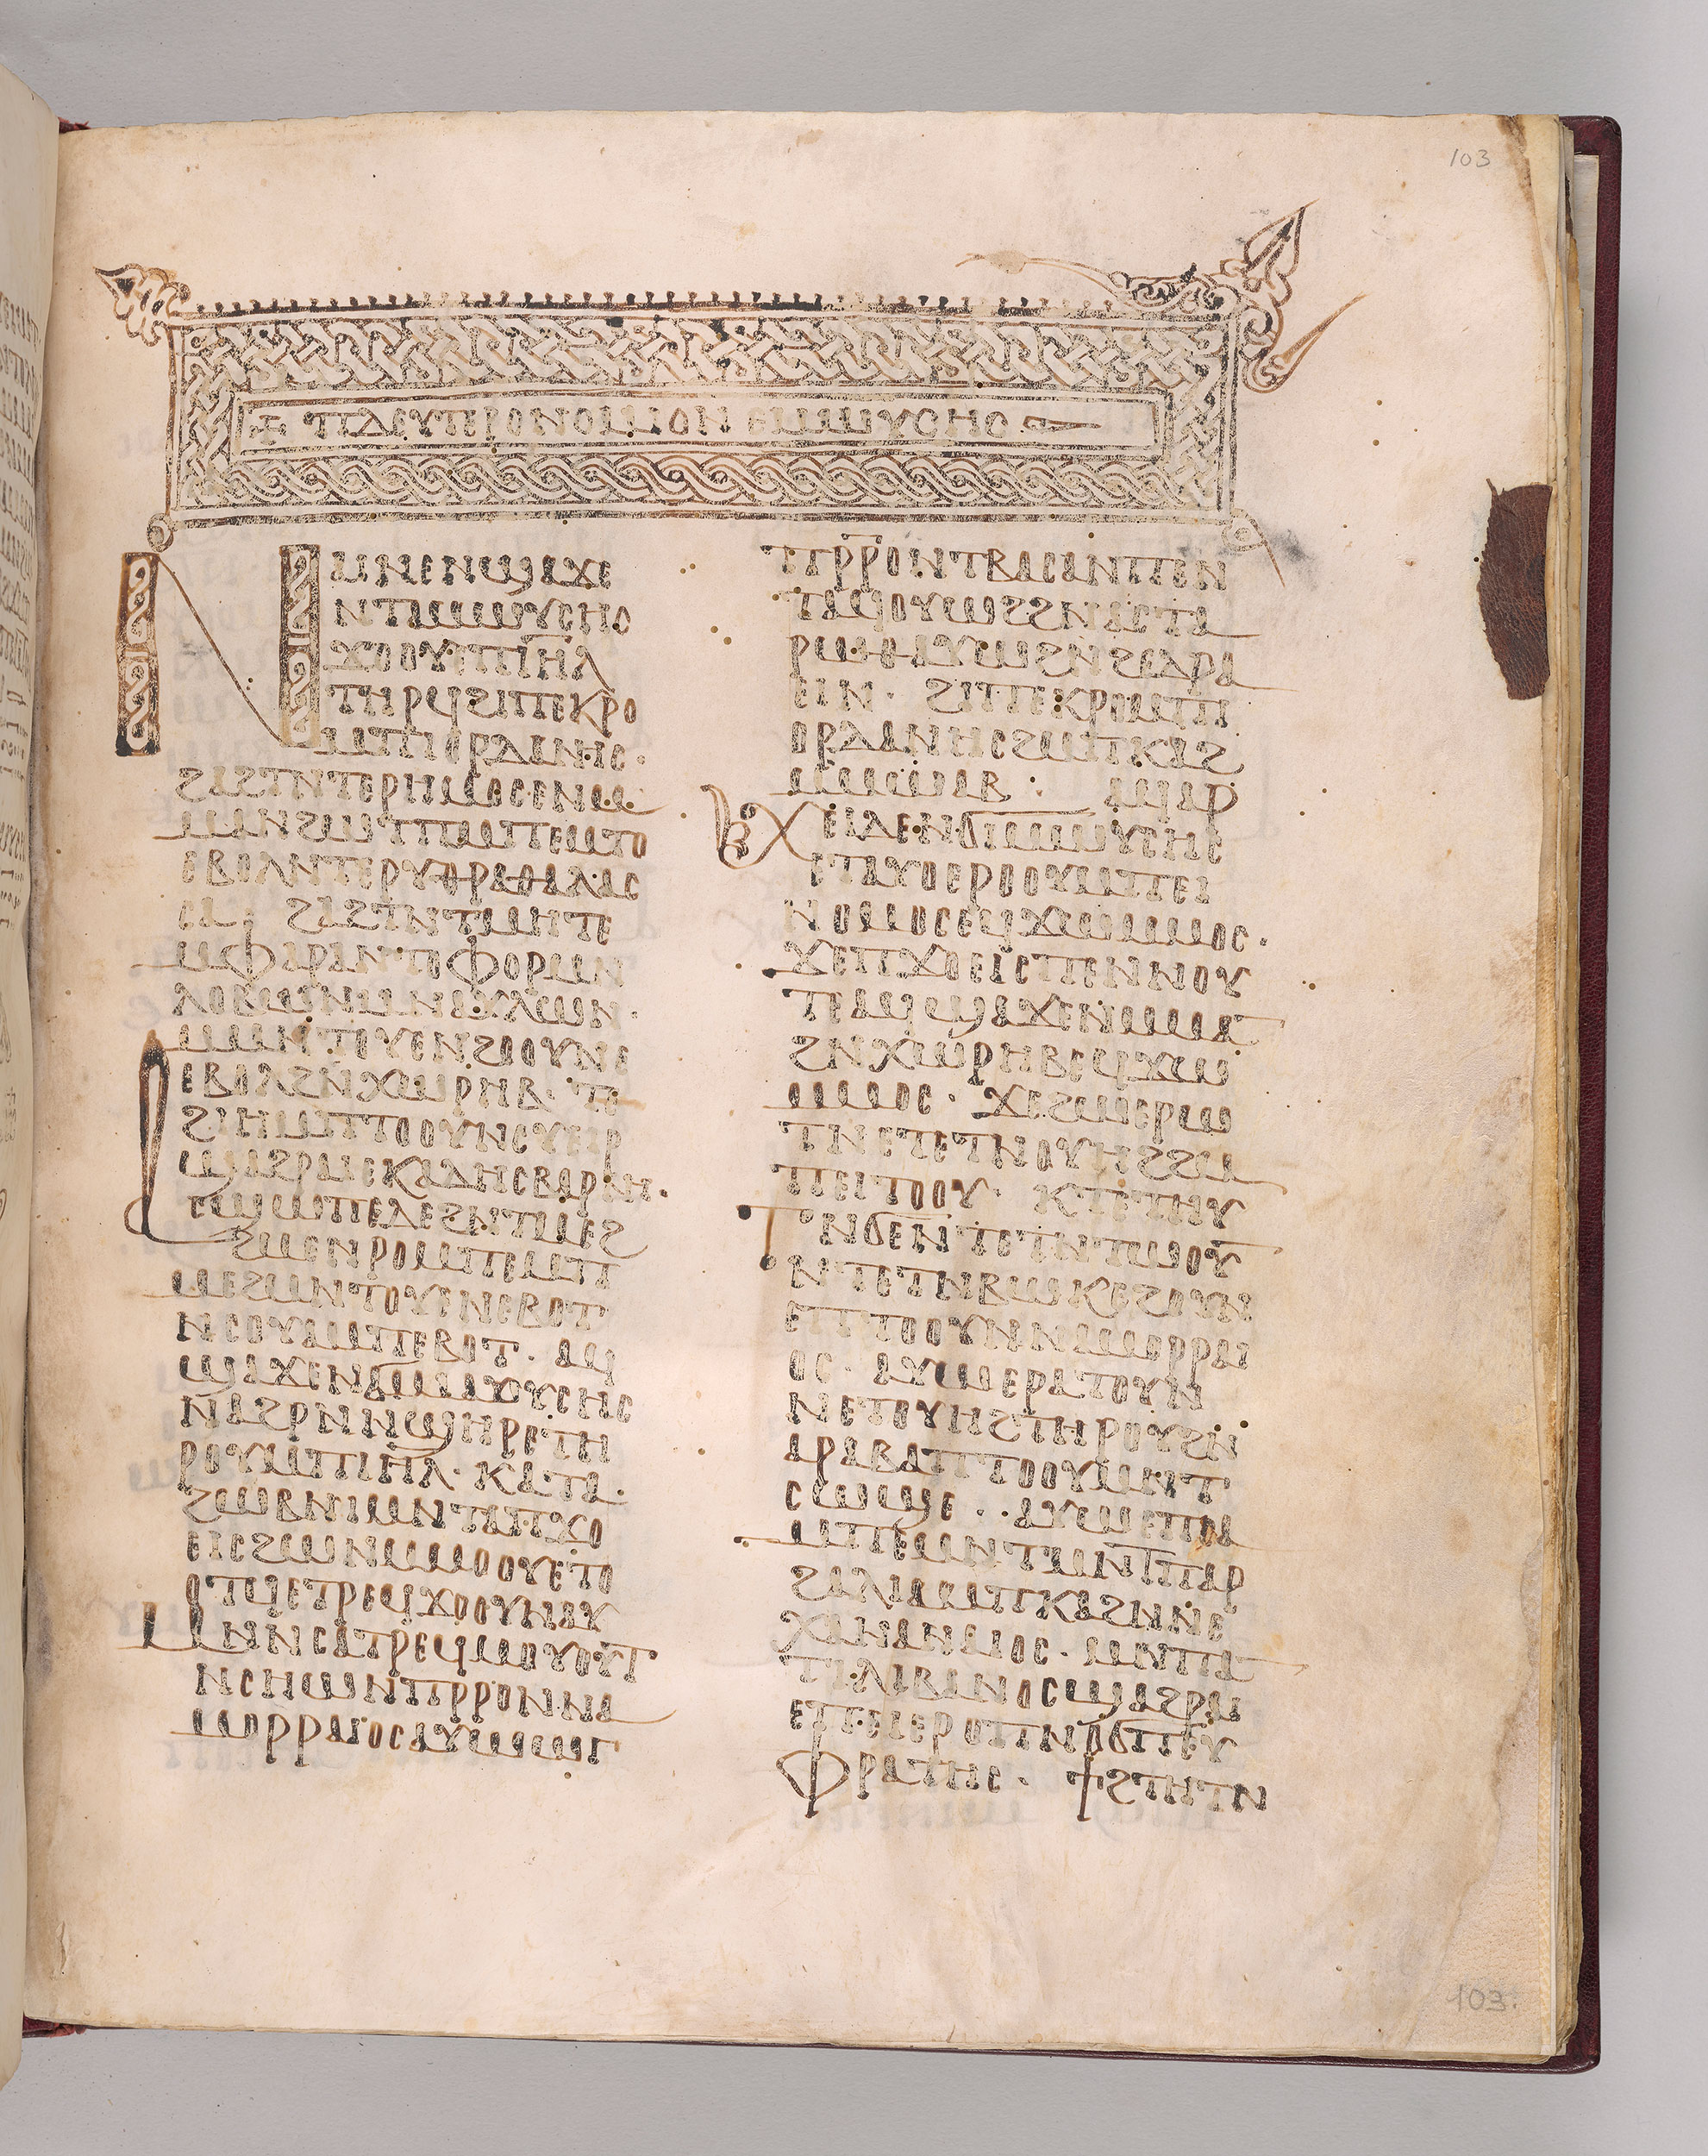 103
ⲡⲇⲉⲩⲧⲉⲣⲟⲛⲟⲙⲓⲟⲛ ⲙⲙⲱⲩⲥⲏⲥ
ⲛⲁⲓ ⲛⲉ ⲛϣⲁϫⲉ
ⲛⲧⲁⲙⲱⲩⲥⲏⲥ
ϫⲟⲟⲩ ⲙⲡⲓⲏⲗ
ⲧⲏⲣϥ ϩⲓⲡⲉⲕⲣⲟ
ⲙⲡⲓⲟⲣⲇⲁⲛⲏⲥ·
ϩⲁϩⲧⲛ ⲧⲉⲣⲏⲙⲟⲥ
ⲙⲁⲛϩⲱⲧⲡ ⲙⲡⲉⲙⲧⲟ
ⲉⲃⲟⲗ ⲛⲧⲉⲣⲩⲑⲣⲁ ⲑⲁⲗⲁⲥ
ⲥⲁ· ϩⲁϩⲧⲛ ⲧⲙⲏⲧⲉ
ⲙⲫⲁⲣⲁⲛ ⲧⲟⲫⲟⲣ ⲙⲛ
ⲗⲟⲃⲱⲛ ⲙⲛ ⲁⲩⲗⲱⲛ·
ⲙⲛⲧⲟⲩⲉ ⲛϩⲟⲟⲩ ⲛⲉ
ⲉⲃⲟⲗ ϩⲛ ⲭⲱⲣⲏⲃ· ⲧⲉ
ϩⲓⲏ ⲙⲡⲧⲟⲟⲩ ⲛⲥⲩⲉⲓⲣ
ϣⲁϩⲣⲁⲓ ⲉⲕⲁⲇⲏⲥ ⲃⲁⲣⲛⲏ·
ⲁⲥϣⲱⲡⲉ ⲇⲉ ϩⲛ ⲧⲙⲉϩ
ϩⲙⲉ ⲛⲣⲟⲙⲡⲉ ⲙⲡ
ⲙⲉϩⲙⲛⲧⲟⲩⲉ ⲛⲉⲃⲟⲧ
ⲛⲥⲟⲩⲁ ⲙⲡⲉⲃⲟⲧ· ⲁϥ
ϣⲁϫⲉ ⲛϭⲓⲙⲱⲩⲥⲏⲥ
ⲛⲁϩⲣⲛ ⲛϣⲏⲣⲉ ⲧⲏ
ⲣⲟⲩ ⲙⲡⲓⲏⲗ· ⲕⲁⲧⲁ
ϩⲱⲃ ⲛⲓⲙ ⲛⲧⲁⲡϫⲟ
ⲉⲓⲥ ϩⲱⲛ ⲙⲙⲟⲟⲩ ⲉⲧⲟ
ⲟⲧϥ ⲉⲧⲣⲉϥϫⲟⲟⲩ ⲛⲁⲩ
ⲙⲛⲛⲥⲁ ⲧⲣⲉϥⲙⲟⲩⲟⲩⲧ
ⲛⲥⲏⲱⲛ ⲡⲣⲣⲟ ⲛⲛⲁ
ⲙⲟⲣⲣⲁⲓⲟⲥ ⲁⲩⲱ ⲱⲅ
ⲡⲣⲣⲟ ⲛⲧⲃⲁⲥⲁⲛ ⲡⲉⲛ
ⲧⲁϥⲟⲩⲱϩ ϩⲛ ⲁⲥⲧⲁ
ⲣⲱⲑ ⲁⲩⲱ ϩⲛ ⲉⲇⲣⲁ
ⲉⲓⲛ· ϩⲓⲡⲉⲕⲣⲟ ⲙⲡⲓ
ⲟⲣⲇⲁⲛⲏⲥ ϩⲙ ⲡⲕⲁϩ
ⲙⲙⲱⲁⲃ: ⲁϥⲁⲣ
ⲭⲉⲓ ⲇⲉ ⲛϭⲓⲙⲱⲩⲥⲏⲥ
ⲉⲧⲁⲩⲟ ⲉⲣⲟⲟⲩ ⲙⲡⲉⲓ
ⲛⲟⲙⲟⲥ ⲉϥϫⲱ ⲙⲙⲟⲥ·
ϫⲉ ⲡϫⲟⲉⲓⲥ ⲡⲉⲛⲛⲟⲩ
ⲧⲉ ⲁϥϣⲁϫⲉ ⲛⲙⲙⲁ
ϩⲛ ⲭⲱⲣⲏⲃ ⲉϥϫⲱ
ⲙⲙⲟⲥ· ϫⲉ ϩⲙⲉⲣⲱ
ⲧⲛ ⲉⲧⲉⲧⲛⲟⲩⲏϩ ϩⲙ
ⲡⲉⲓⲧⲟⲟⲩ· ⲕⲧⲉⲧⲏⲩ
ⲧⲛ ϭⲉ ⲛⲧⲉⲧⲛⲧⲱⲟⲩ
ⲛⲧⲉⲧⲛⲃⲱⲕ ⲉϩⲟⲩⲛ
ⲉⲡⲧⲟⲟⲩ ⲛⲛⲁⲙⲟⲣⲣⲁⲓ
ⲟⲥ· ⲁⲩⲱ ⲉⲣⲁⲧⲟⲩ ⲛ
ⲛⲉⲧⲟⲩⲏϩ ⲧⲏⲣⲟⲩ ϩⲛ
ⲁⲣⲁⲃⲁ ⲡⲧⲟⲟⲩ ⲙⲛ ⲧ
ⲥⲱϣⲉ·· ⲁⲩⲱ ⲉⲡⲙⲁ
ⲙⲡⲉⲙⲛⲧ ⲙⲛ ⲧⲡⲁⲣ
ϩⲁⲗⲓⲁ ⲙⲡⲕⲁϩ ⲛⲛⲉ
ⲭⲁⲛⲁⲛⲁⲓⲟⲥ· ⲙⲛ ⲡⲁ
ⲧⲓⲗⲓⲃⲁⲛⲟⲥ ϣⲁϩⲣⲁⲓ
ⲉⲡⲉⲓⲉⲣⲟ ⲡⲛⲟϭ ⲡⲉⲩ
ⲫⲣⲁⲧⲏⲥ· ϯϩⲧⲏⲧⲛ
103